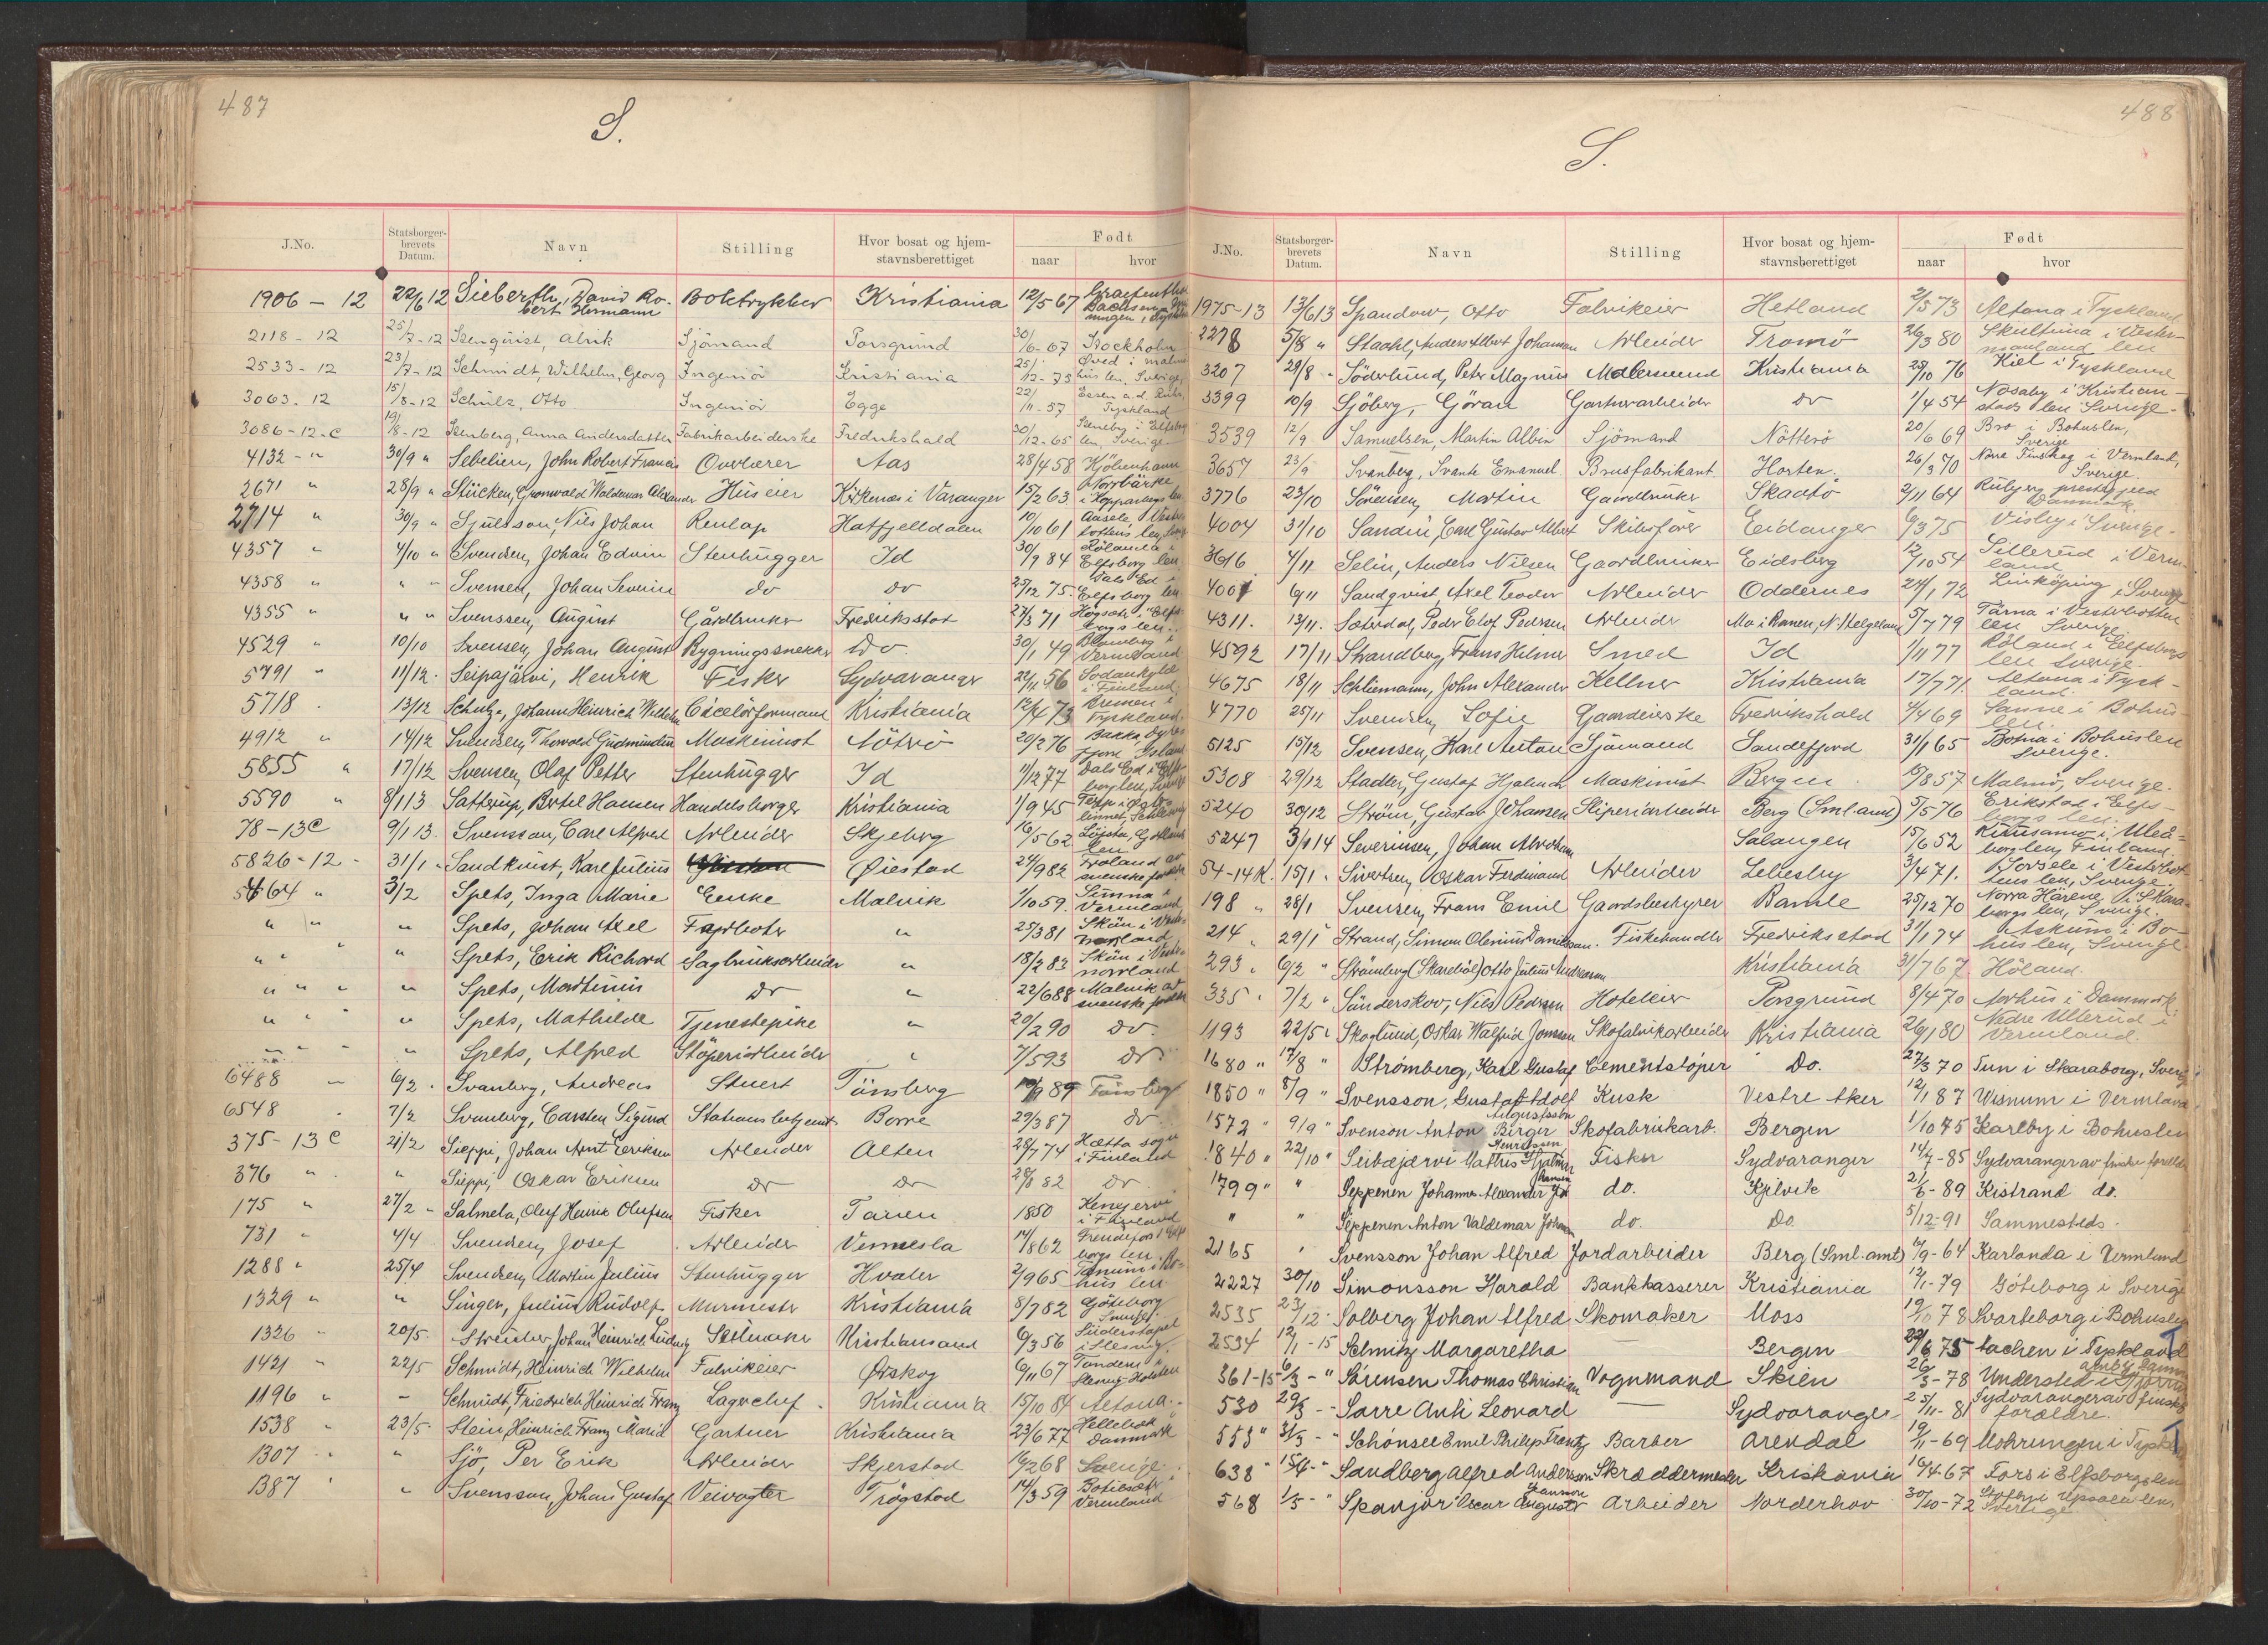 487
S.
J.No. Statsborger-brevets Datum. Navn Stilling Hvor bosat og hjem-stavnsberettiget Født naar hvor
1906 - 12 22/6 12 Sieberth, David Ro-bert Hermann Boktrykker Kristiania 12/5 67
2118 - 12 25/7-12 Stenquist, Alrik Sjömand Porsgrund 30/6-67 Stockholm
2533 - 12 23/7-12 Schmidt, Wilhelm, Georg Ingeniör Kristiania 25/12-73 Öved i malmö hus len, Sverige
3063. 12 15/8-12 Schulz, Otto Ingeniör Egge 22/11-57 Essen a.d. Ruhr, Tyskland
3086-12-C 19/8-12 Stenberg, Anna Andersdatter Fabrikarbeiderske Fredrikshald 30/12-65 len, Sverige
4132 - " 30/9 " Sebelien, John Robert Francis Overlærer Aas 28/4 58 Kjöbenhavn
2671 " 28/9 " Stücken, Gronwald Waldemar Alexander Huseier Kirkenæs i Varanger 15/2 63 Norrbärke i Kopparbergs len
2714 " 30/9 " Sjulsson, Nils Johan Renlap Hatfjelldalen 10/10 61 Aasele, Vester-bottens len,
4357 " 4/10 " Svendsen, Johan Edvin Stenhugger Id 30/9 84 Rölanda i Elfsborg len
4358 " " " Svensen, Johan Severin do do 25/12 75 Dals Ed i Elfsborg len
4355 " " " Svenssen, August Gårdbruker Fredriksstad 27/3 71 Högsäter i Elfs-borgs len
4529 " 10/10 Svensen, Johan August Bygningssnekker Do. 30/1 49 Vermland
5791 " 11/12. Seipäjärvi, Henrik Fisker Sydvaranger 22/11 56 Sodankylä i Finland
5718 . 13/12 Schulze, Johann Heinrich Wilhelm Kristiania 12/4 73 Bremen i Tyskland.
4912 " 14/12 Svendsen, Thorvald Gudmundsen Maskinist Nötterö 20/2 76
5855 " 17/12 Svensen, Olaf Petter Stenhugger Id 1/12 77 Dals Ed i Elfs-borg len, Sverige
5590 " 8/1 13 Satterup, Bertel Hansen Handelsborger Kristiania 1/9 45
78-13C 9/1 13. Svensson, Carl Alfred Arbeider Skjeberg 16/5 62 Löjsta, Gotlands len
5826-12 - 31/1 " Sandkvist, Karl Julius Øiestad 24/9 82 Froland av svenske forældre
5464 " 3/2 Spets, Inga Marie Enke Malvik 1/10 59. Sunne i Vermland
" " " Spets, Johan Axel Fajrboter " 25/3 81 Skön i Vester-norrland
" " " Spets, Erik Richard Sagbruksarbeider " 18/2 83 Skön i Vester-norrland
" " " Spets, Martinus do " 22/6 88 Malvik av svenske forældre
" " " Spets, Mathilde Tjenestepike " 20/2 90 do.
" " " Spets, Alfred Stöperiarbeider " 7/5 93 do
6488 " 6/2. Svanberg, Andreas Stuert Tönsberg 89 Tönsberg
6548 . 7/2 Svanberg, Carsten Sigurd Stationsbetjent Borre 29/3 87 do
375-13C 21/2 Sieppi, Johan Arnt Eriksen Arbeider Alten 28/7 74 Kætta sogn i Finland
376 " " Sieppi, Oskar Eriksen do do 82 do.
175 " 27/2 " Salmela, Oluf Henrik Olufsen Fisker Tanen 1850
731 " 4/4 Svendsen, Josef Arbeider Vennesla 14/8 62
1288 " 25/4 Svendsen, Martin Julius Stenhugger Hvaler 2/9 65 Tanum i Bo-hus len
1329 " " Singer, Julius Rudolf Murmester Kristiania 8/7 82 Göteborg Sverige
1326 " 20/5. Streicher, Johan Heinrich Ludwig Seilmaker Kristiansand 6/3 56 Süderstapel i Slesvig
1421 " 22/5 Schmidt, Heinrich Wilhelm Fabrikeier Ørskog 6/11 67 Tondern i Slesvig-Holsten
1196 " - Schmidt, Friedrich Heinrich Franz Lagerchef. Kristiania 15/10 84 Altona.
1538 " 23/5. Stein, Heinrich Franz Maria Gartner Kristiania 23/6 77 Hellebæk Danmark
1307 " " Sjö, Per Erik Arbeider Skjerstad 16/2 68 Sverige.
1387 " " Svensson, Johan Gustaf Veivogter Trögstad 14/3 59 Vermland
488
S.
J.No. Statsborger-brevets Datum. Navn Stilling Hvor bosat og hjem-stavnsberettiget Født naar hvor
1975-13 13/6 13 Spandow, Otto Fabrikeier Hetland 2/5 73 Altona i Tyskland
2278 5/8 " Staahl, Anders Albert Johansen Arbeider Tromö 26/3 80 Skultuna i Vester-manland len
3207 29/8 " Söderlund, Peter Magnus Malersvend Kristiania 25/10 76 Kiel i Tyskland
3399 10/9 Sjöberg, Göran Gartnerarbeider do 1/4 54 Nosaby i Kristian-stads len Sverige.
3539 12/9 Samuelsen, Martin Albin Sjömand Nötterö 20/6 69 Bro i Bohuslen, Sverige
3657 23/9 Svanberg, Svante Emanuel Brusfabrikant. Horten. 26/3 70 Norra Finskog i Vermland, Sverige.
3776 23/10 Sörensen, Martin Gaardbruker Skaatö 2/11 64 Rubjerg prestegjeld Danmark.
4004 31/10 Sandin, Carl Gustav Albert Skibsförer Eidanger 6/3 75 Visby i Sverige.
3616 4/11 Selin, Anders Nilsen Gaardbruker Eidsberg 12/10 54 Sillerud i Verm-land
4001 6/11 Sandqvist Axel Teodor Arbeider Oddernes 24/1 72 Linköping i Sverige
4311. 13/11. Sæterdal, Peder Elof Pedersen Arbeider Mo i Ranen, N. Helgeland 5/7 79 Tärna i Vesterbotten len Sverige
4592 17/11 Strandberg, Frans Helmer Smed Id 1/11 77 Röland i Elfsborgs len Sverige
4675 18/11 Schliemann, John Alexander Kellner Kristiania 17/7 71. Altona i Tysk-land.
4770 25/11 Svendsen, Sofie Gaardeierske Fredrikshald 4/4 69 Sanne i Bohus-len.
5125 15/12 Svensen, Karl Anton Sjömand Sandefjord 31/1 65 Botna i Bohuslen Sverige.
5308 29/12 Stadler, Gustaf Hjalmar Maskinist Bergen 15/8 57 Malmö, Sverige.
5240 30/12 Ström, Gustav Johansen Sliperiarbeider Berg (Sml. amt) 5/5 76 Erikstad i Elfs-borgs len.
5247 3/1 14 Severinsen, Johan Abraham Salangen 15/6 52 Kuusamo i Uleå-borg len, Finland.
54-14K. 15/1 " Sivertsen, Oskar Ferdinand Arbeider Lebesby 3/4 71. Sorsele i Vesterbot-tens len, Sverige.
198 " 28/1 Svensen, Frans Emil Gaardsbestyrer Bamle 25/12 70 Norra Härene i Skara-borgs len, Sverige.
214 " 29/1 Strand, Simon Olenius Danielsson. Fiskehandler Fredriksstad 31/1 74 Askum i Bo-hus len, Sverige.
293 " 6/2 " Strömberg (Skareböl) Otto Julius Andreasen Kristiania 31/7 67 Höland.
335 " 7/2 " Sönderskov, Niels Pedersen Hoteleier Porsgrund 8/4 70 Aarhus i Danmark.
1193 22/5 " Skoglund, Oskar Walfrid Jonsson Skofabrikarbeider Kristiania 26/1 80 Nedre Ullerud i Vermland.
1680 " 17/8 " Strömberg, Karl Gustaf Cementstøper Do. 27/3 70 Tun i Skaraborg, Sverig
1850 " 8/9 " Svensson, Gustaf Adolf Kusk Vestre Aker 12/1 87 Visnum i Vermland
1572 " 9/9 " Svenson Anton Birger Augustssøn Skofabrikarb. Bergen 1/10 75 Karlby i Bohuslen
1840 " 22/10 " Siibajærvi Mathis Hjalmar Henriksen Fisker Sydvaranger 14/7-85 Sydvaranger av finske foreldre
1799 " " Seppenen Johannes Alexander Johansen do. Kjelvik 2/6-89 Kistrand do.
" " Seppenen Anton Valdemar Johansen do. Do. 5/12-91 Sammesteds.
2165 ' Svensson Johan Alfred Jordarbeider Berg (Sml. amt) 6/9-64 Karlanda i Vermland
2227 30/10 Simonsson Harald Bankkasserer Kristiania 12/1-79 Göteborg i Sverige
2535 23/12. Solberg Johan Alfred Skomaker Moss 19/10 78 Svarteborg i Bohuslen
2534 12/1-15 Selmitz Margaretha Bergen 22/6 75 Aachen i Tyskland
361-15 6/3-" Sørensen Thomas Christian Vognmand Skien 26/3-78 Understed i
530 29/3 - Sarre Anti Leonard — Sydvaranger 25/11-81 Sydvaranger av finske forældre.
555 " 31/3 - " Schönsee Emil Philip Frantz Barber Arendal 19/11-69 Mohrungen i Tyskland
638 " 15/4-" Sandberg Alfred Andersson Skræddermester Kristiania 16/4-67 Fors i Elfsborgslen
568 1/5 - " Spanjor Oscar August Arbeider Norderhov 30/10-72 Upsala len, Sverige